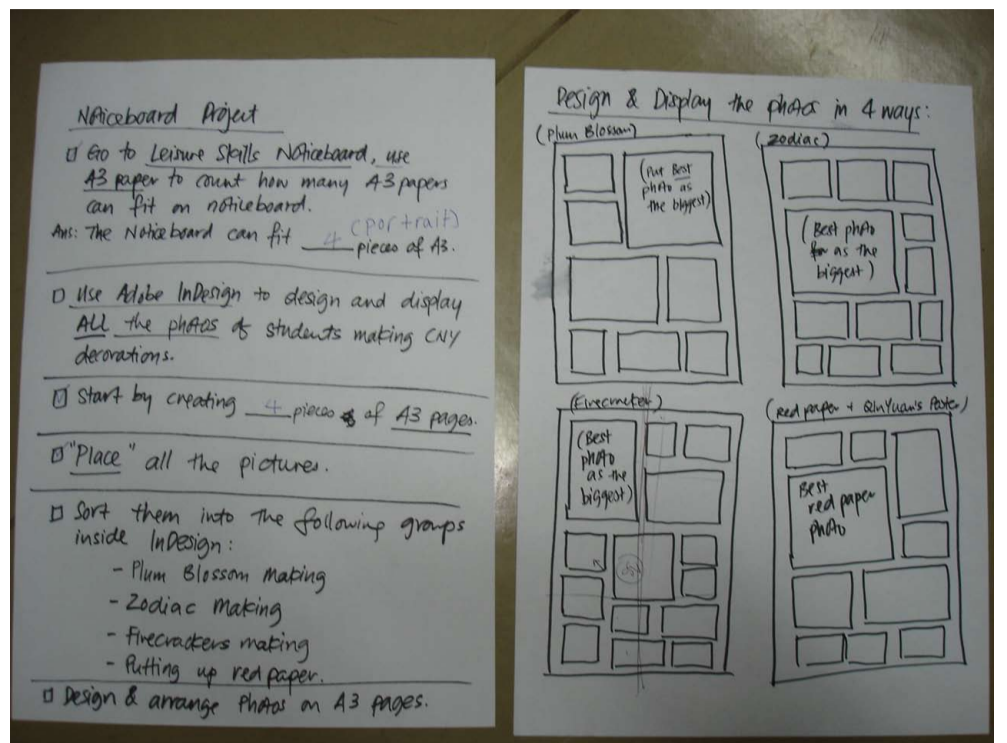 Noticeboard Project
Go to Leisure Skills Noticeboard, use
A3 paper to count how many A3 papers
can fit on noticeboard.
(portrait)
Ans: The Noticeboard can fit 4 pieces of A3.
Use Adobe InDesign to design and display
ALL the photos of students making CNY
decorations.
Start by creating 4 pieces of A3 pages.
"Place" all the pictures.
Sort them into the following groups
inside InDesign:
- Plum Blossom making
- Zodiac making
- Firecrackers making
- Putting up red paper.
Design & arrange photos on A3 pages.
Design & Display the photos in 4 ways:
(Plum Blossom)
(Put Best
photo as
the biggest)
(Zodiac)
(Best photo
as the
biggest)
(Firecracker)
(Best
photo
as the
biggest)
(Red paper + QinYuan's Poster)
Best
red paper
photo